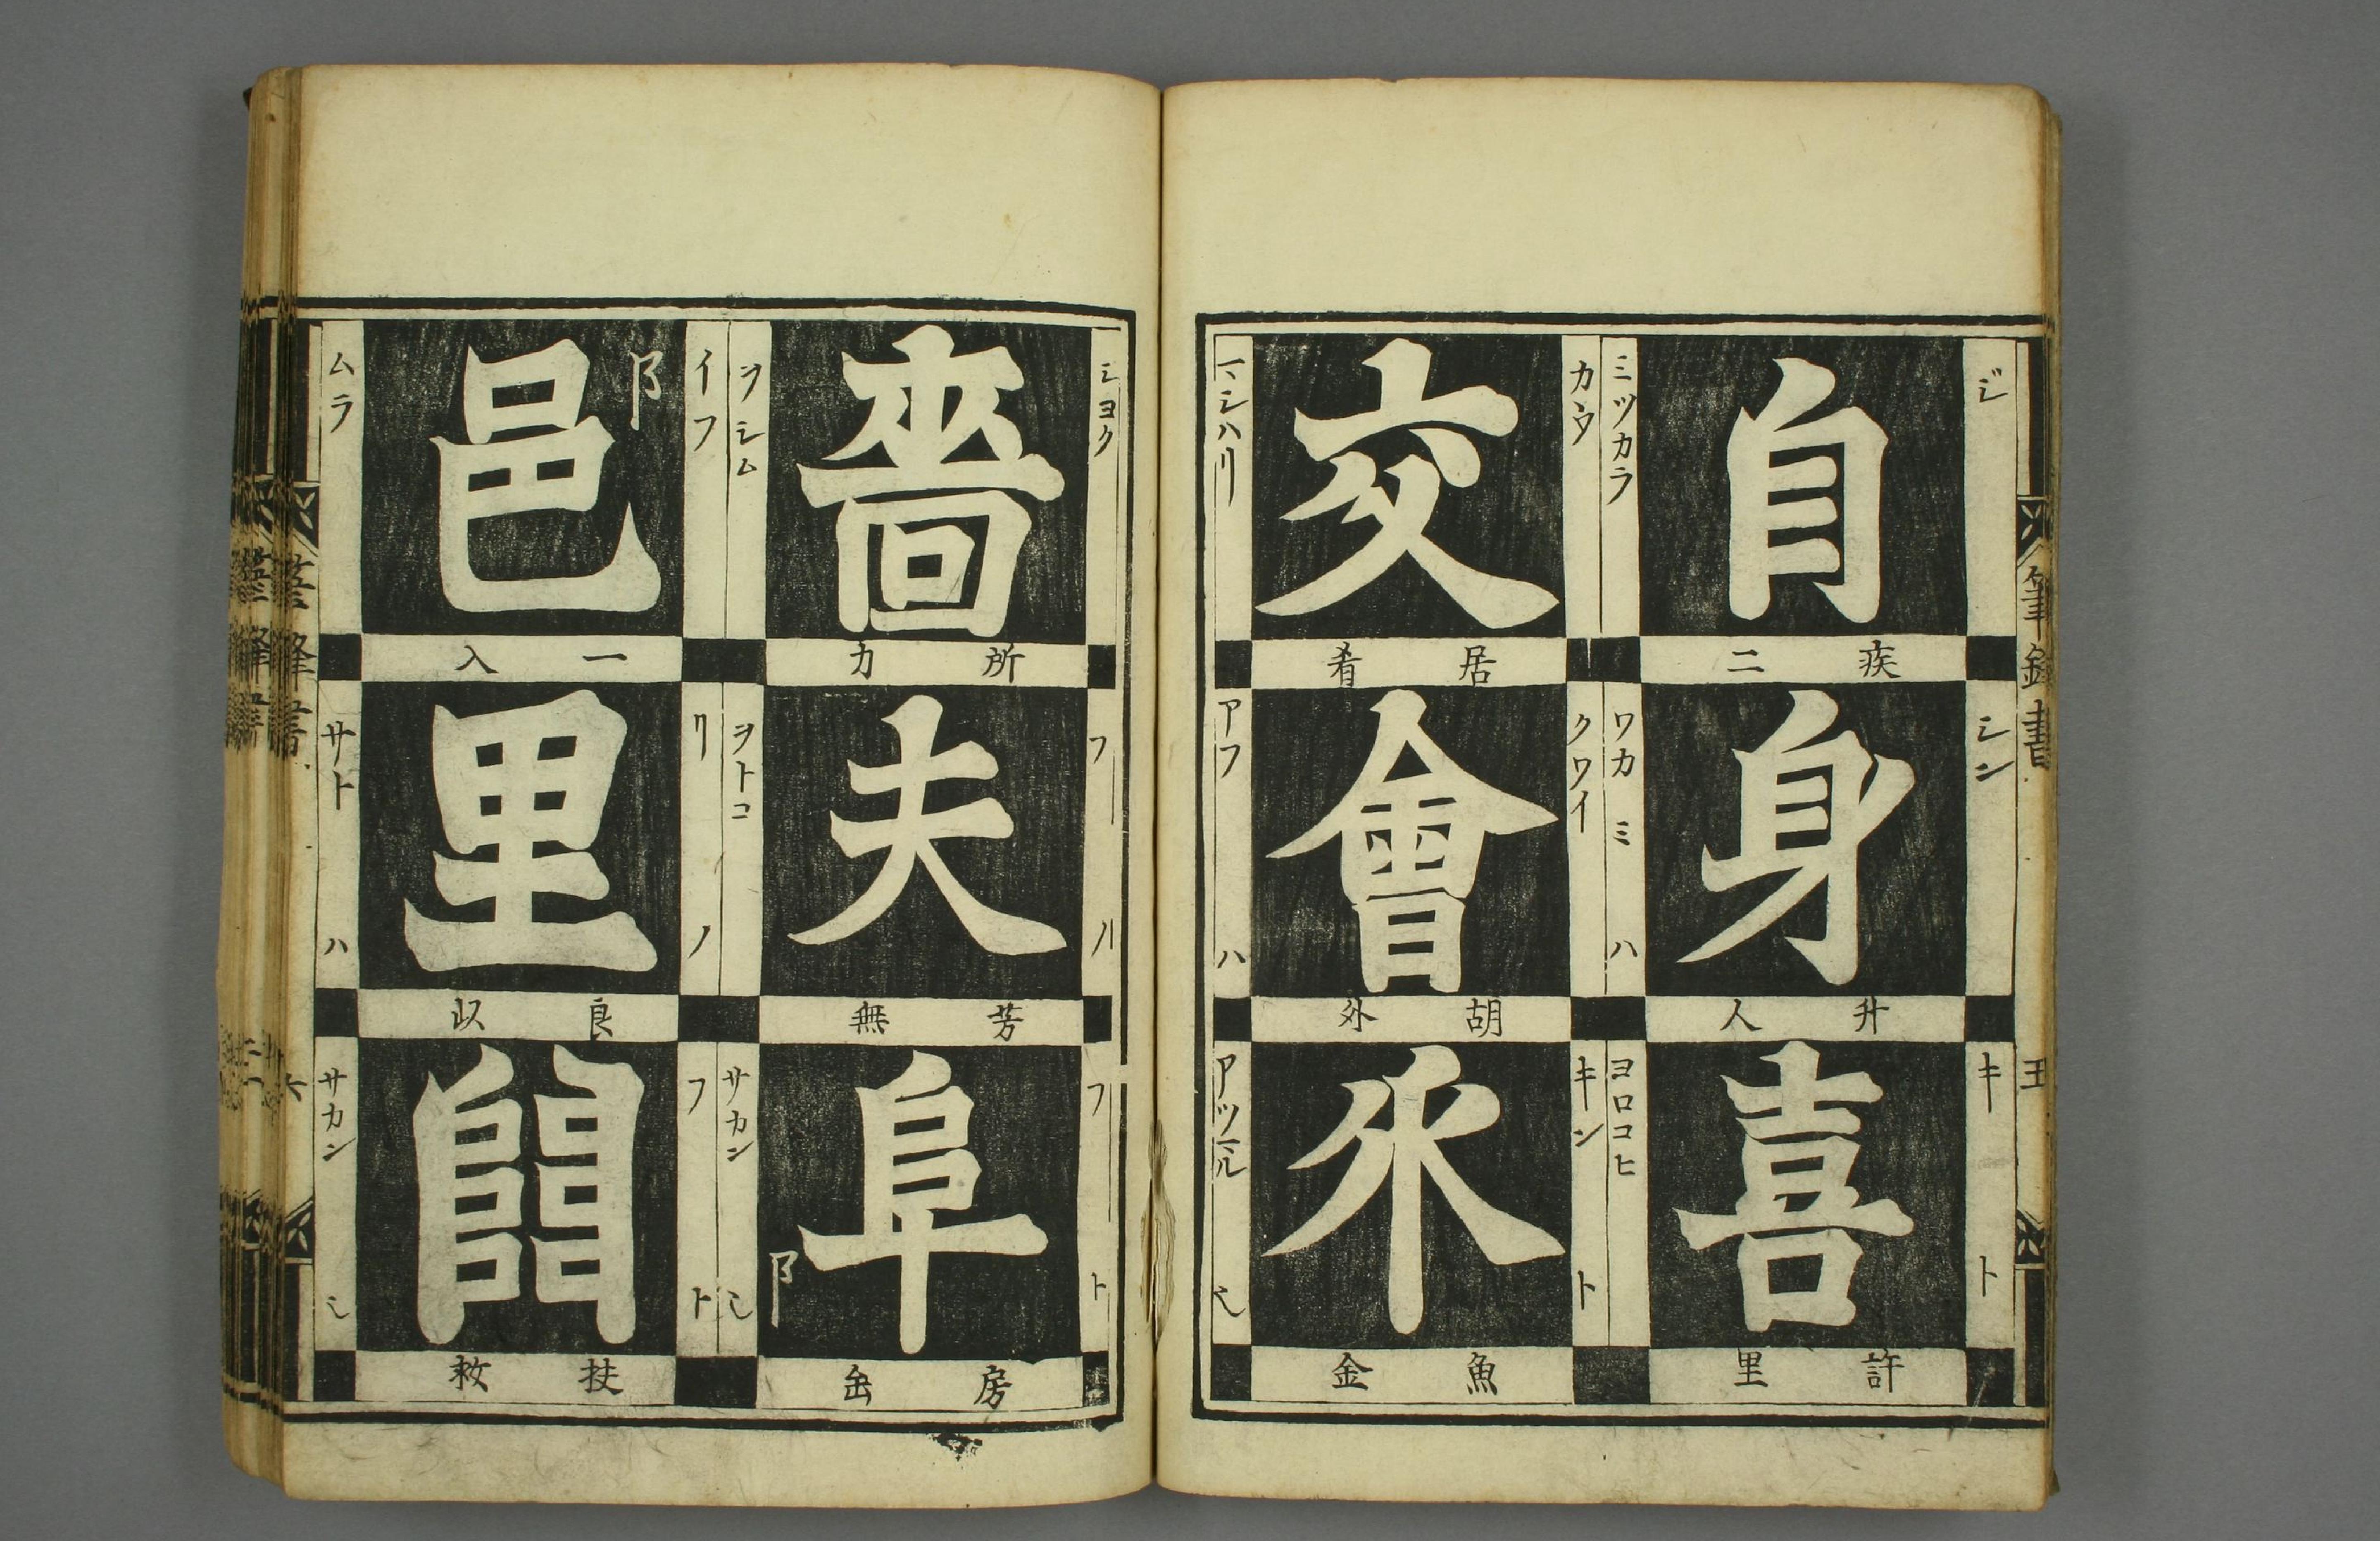 筆鋒書
五
ジ
自
ミツカラ
疾二
シン
身
ワカミ ハ
升人
キ ト
喜
ヨロコヒ
許里
カウ
交
マシハリ
居肴
クワイ
會
アフ ハ
胡外
キン ト
乑
アツマル
魚金
シヨク
嗇
ヲシム
所力
フ ハ
夫
ヲトコ
芳無
フ ト
阜
阝
サカン
房缶
イフ
阝
邑
ムラ
一入
リ ノ
里
サト ハ
良以
フ ト
サカン
扶救
筆鋒書
六